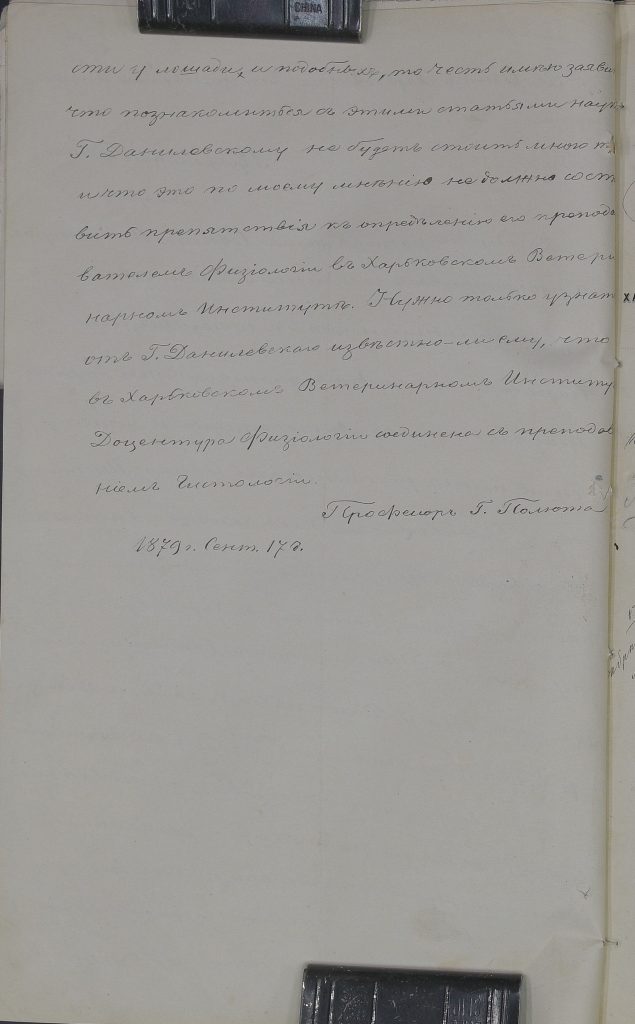 CHINA
сти у лошади, и подобныхъ, то честь имѣю заяви
что познакомиться съ этими статьями науки
Г. Данилевскому не будетъ стоить много
и что это по моему мнѣнію не должно соста
вить препятствія къ опредѣленію его препода
вателемъ Физіологіи въ Харьковскомъ Ветери
нарномъ Институтѣ. Нужно только узнать
отъ Г. Данилевскаго извѣстно-ли ему, что
въ Харьковскомъ Ветеринарномъ Институ
Доцентура Физіологіи соединена съ преподава
ніемъ Гистологіи.
Профессоръ Г. Полюта
1879 г. Сент. 17 д.